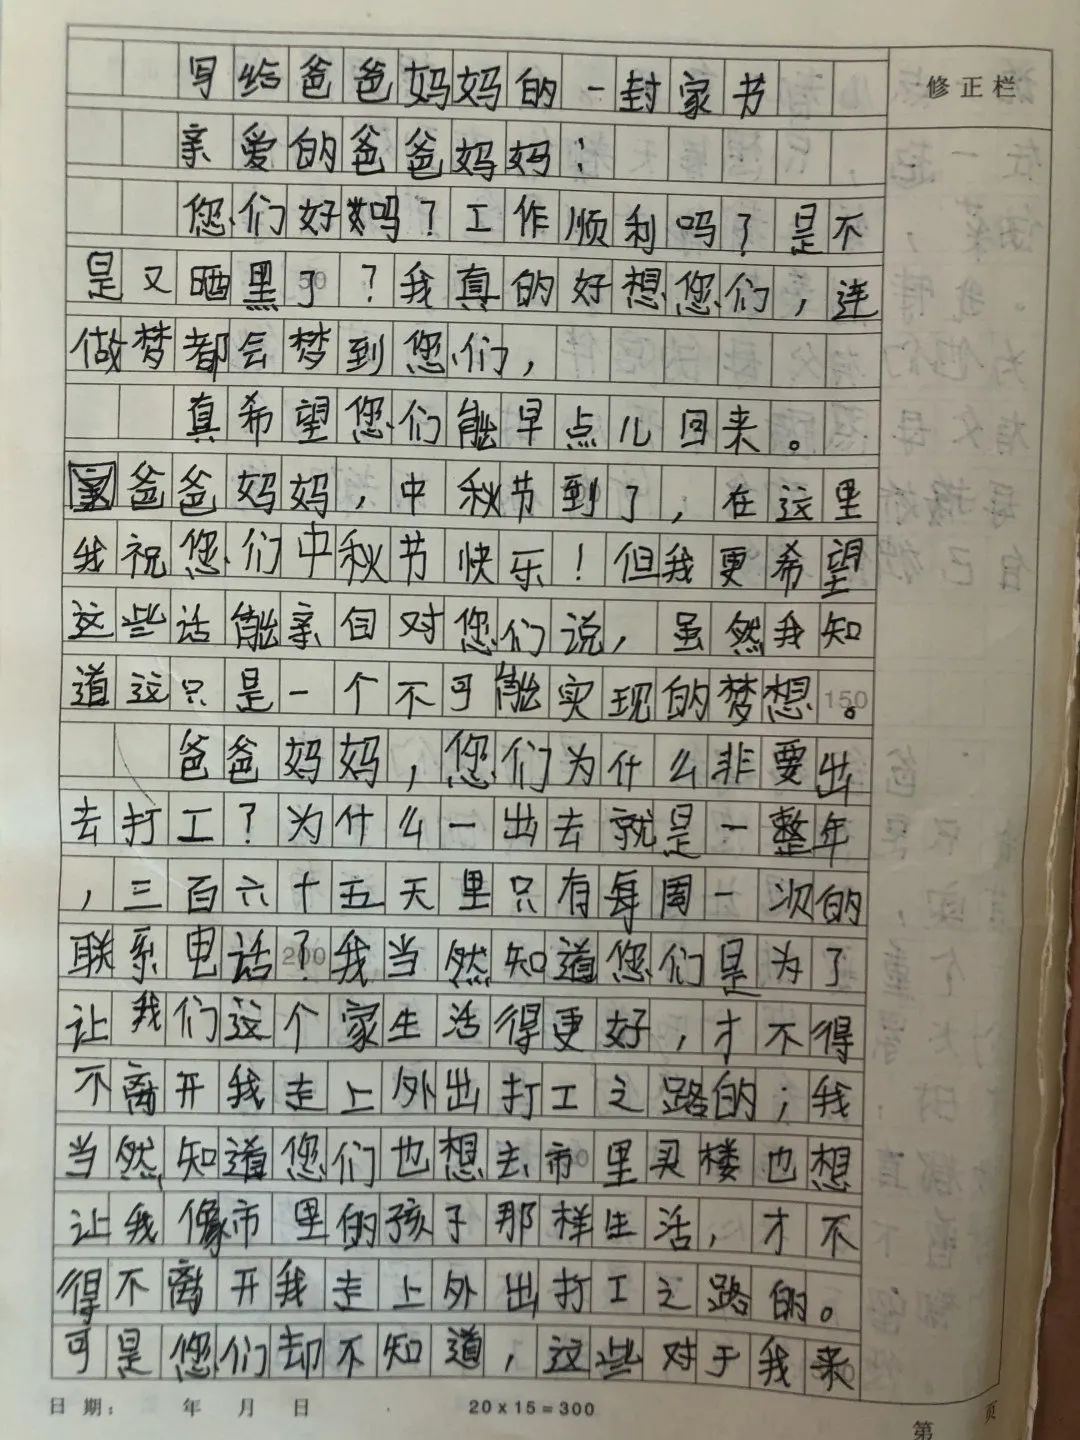 写给爸爸妈妈的一封家书
修正栏
亲爱的爸爸妈妈：
您们好吗？工作顺利吗？是不
是又晒黑了？我真的好想您们，连
做梦都会梦到您们，
真希望您们能早点儿回来。
爸爸妈妈，中秋节到了，在这里
我祝您们中秋节快乐！但我更希望
这些话能亲自对您们说，虽然我知
道这只是一个不可能实现的梦想。
150
爸爸妈妈，您们为什么非要出
去打工？为什么一出去就是一整年
，三百六十五天里只有每周一次的
联系电话？我当然知道您们是为了
200
让我们这个家生活得更好，才不得
不离开我走上外出打工之路的；我
当然知道您们也想去市里买楼也想
让我像市里的孩子那样生活，才不
得不离开我走上外出打工之路的。
可是您们却不知道，这些对于我来
日期： 年 月 日
20×15=300
第 页